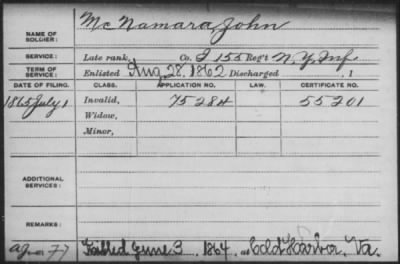 McNamara, John
NAME OF SOLDIER:
SERVICE: Late rank, Co. I 155 Reg't N.Y. Inf.
TERM OF SERVICE: Enlisted Aug. 28, 1862 Discharged , 1
DATE OF FILING. CLASS. APPLICATION NO. LAW. CERTIFICATE NO.
1865 July 1 Invalid, 75284 55201
Widow,
Minor,
ADDITIONAL SERVICES:
REMARKS:
June 3 1864, at Cold Harbor, Va.